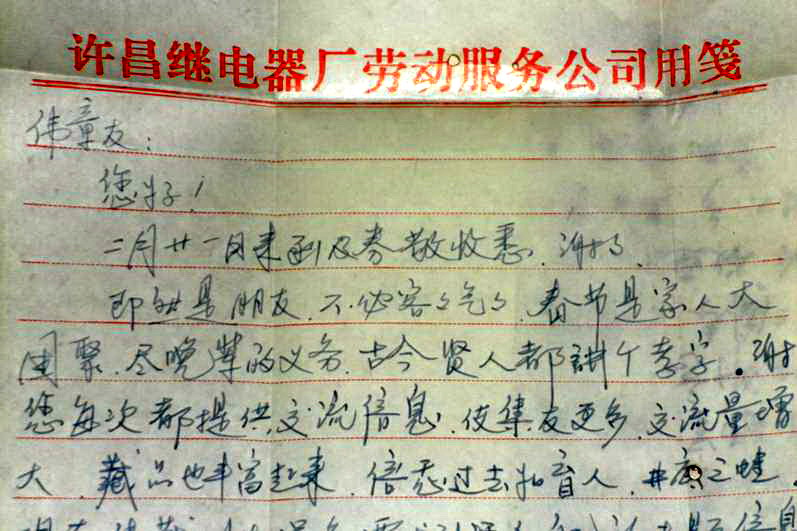 许昌继电器厂劳动服务公司用笺
伟童友：
您好！
二月廿一日来函及券敬收悉．谢谢．
即然是朋友．不必客客气气．春节是家人大
团聚．尽晚辈的义务．古今贤人都讲个孝字．谢谢
您每次都提供交流信息．使集友更多．交流量增
大．藏品也丰富起来．倍悉过去如盲人．井底之蛙．